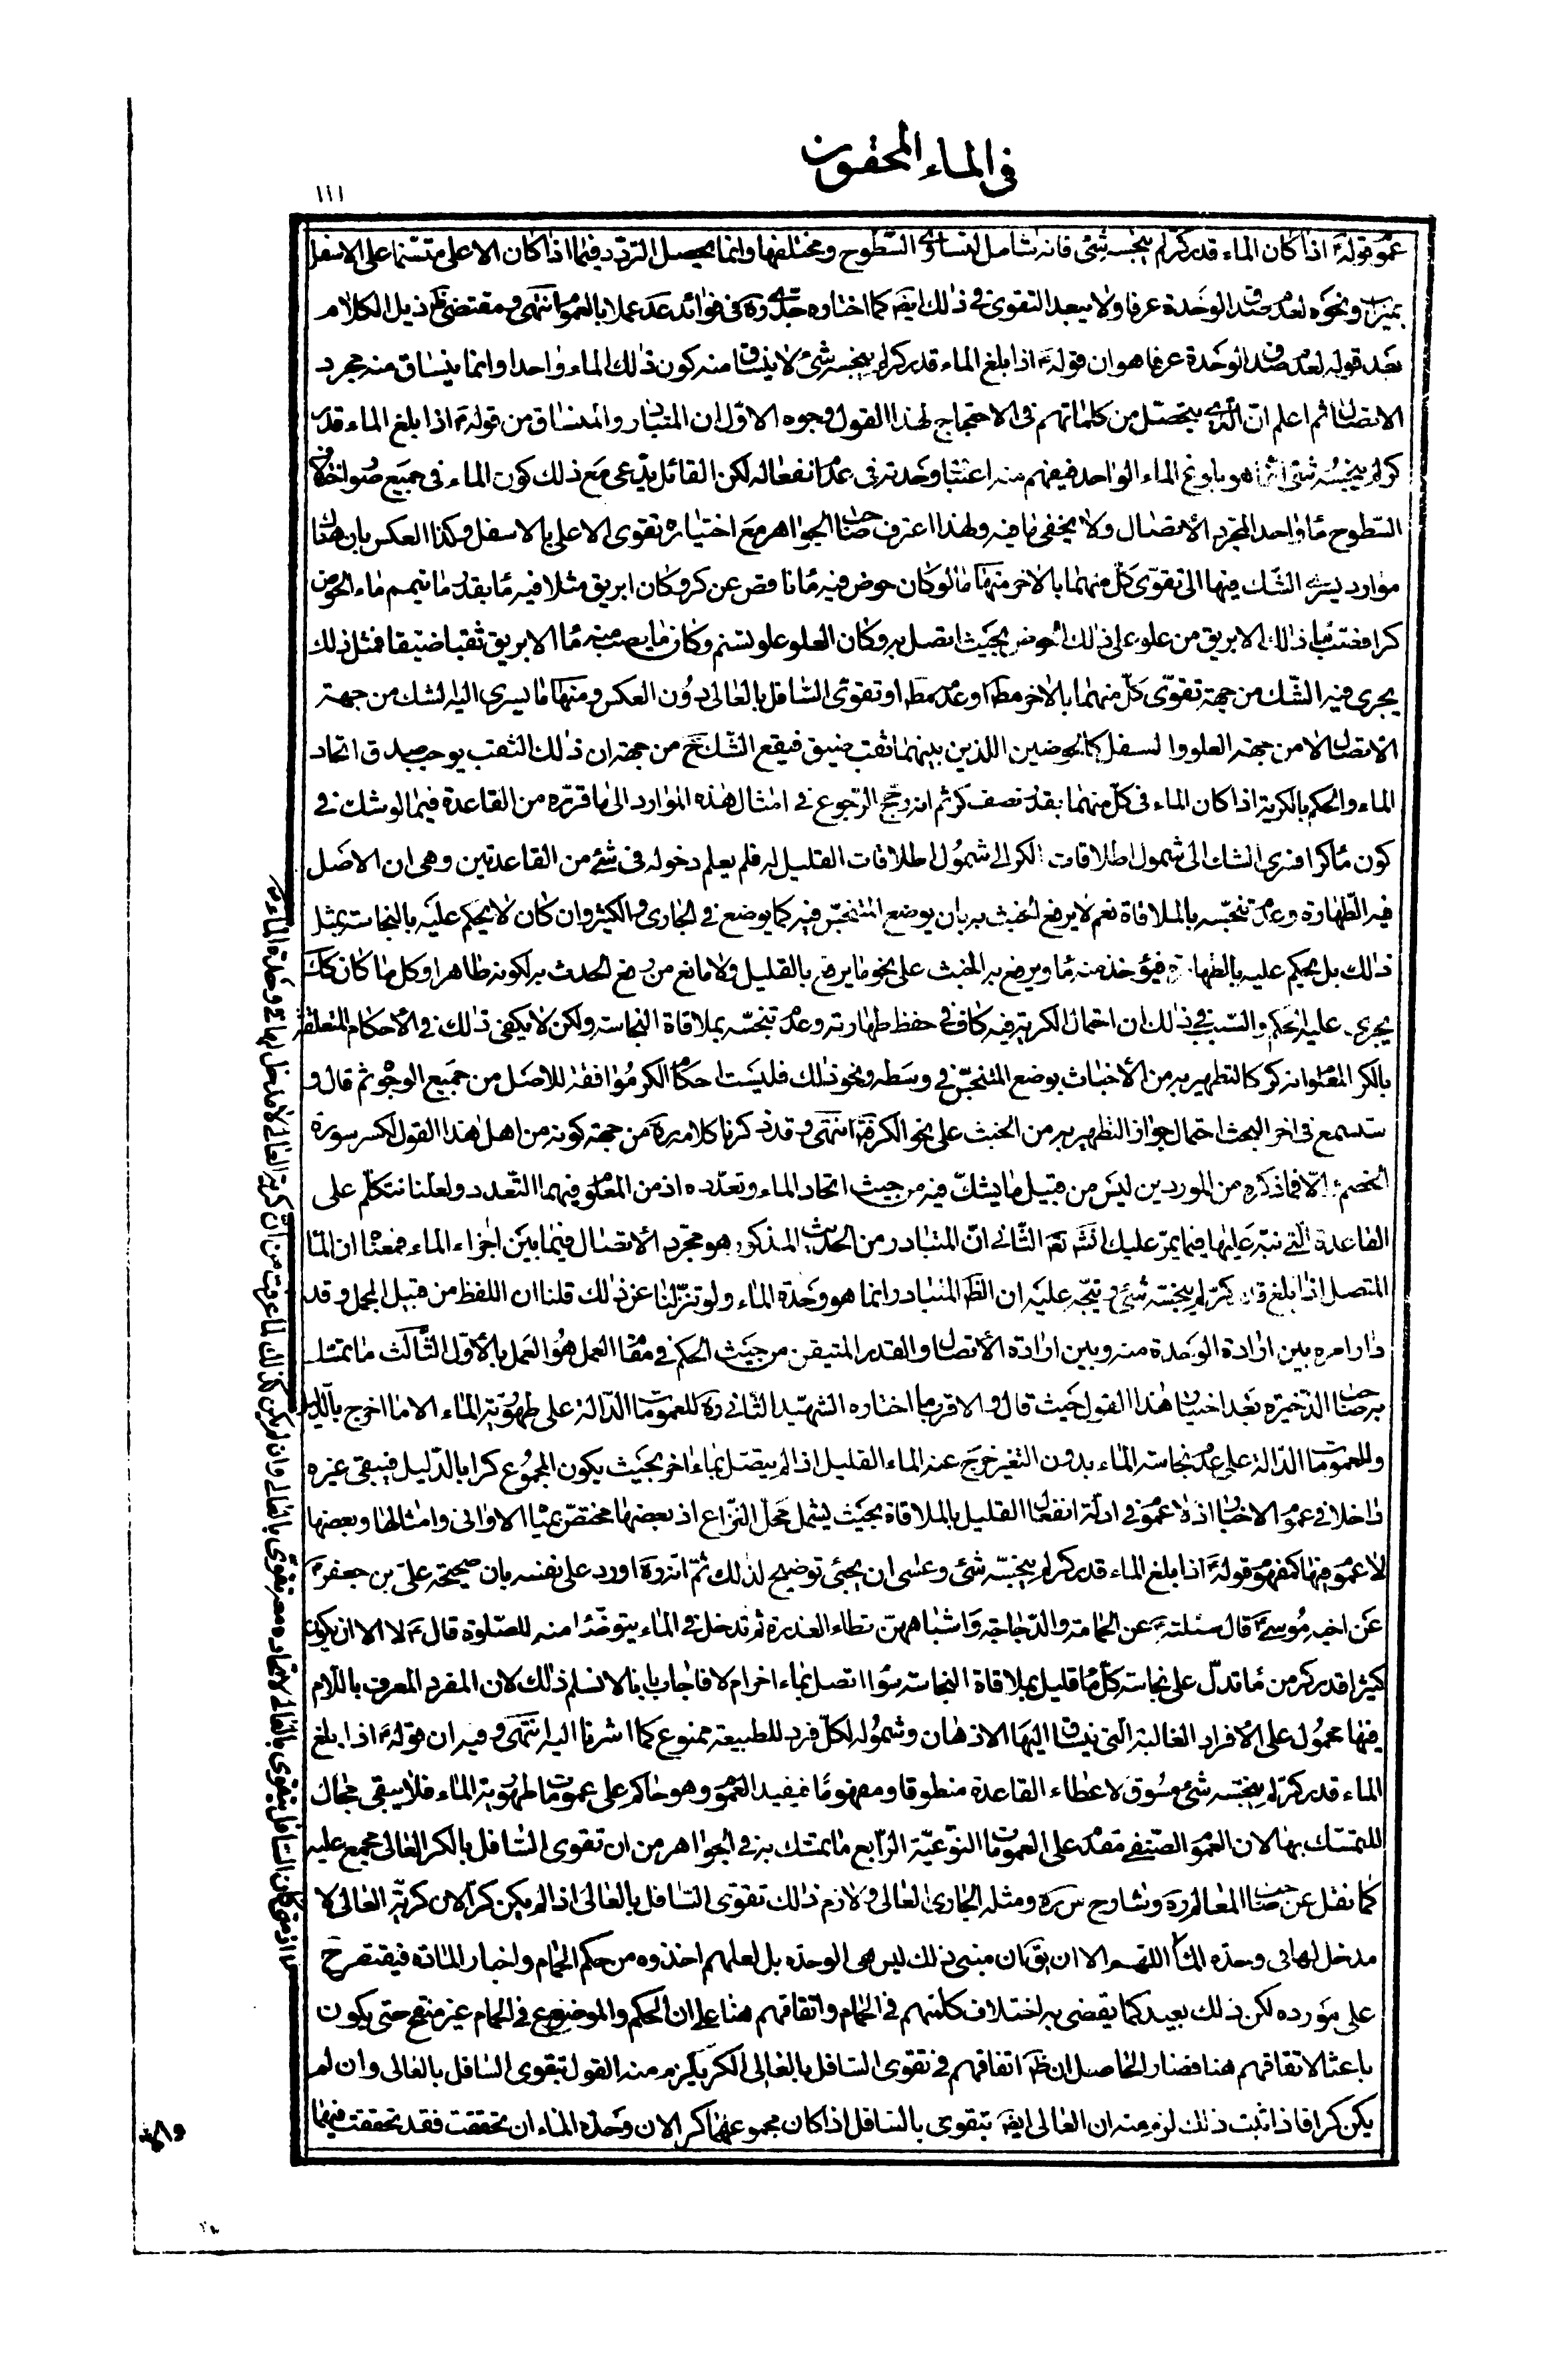 في الماء المحقون
١١١
عموم قوله ع اذا كان الماء قدر كر لم ينجسه شئ فانه شامل لمتساوى السطوح ومختلفها وانما يحصل التردد فيما اذا كان الاعلى متسنما على الاسفل
بميزاب ونحوه لعدم صدق الوحدة عرفا ولا يبعد التقوى في ذلك ايضا كما اختاره جدى ره في فوائد عد عملا بالعموم انتهى ومقتضى ظ ذيل الكلام
بعد قوله لعدم صدق الوحدة عرفا هو ان قوله ع اذا بلغ الماء قدر كر لم ينجسه شئ لا ينساق منه كون ذلك الماء واحدا وانما ينساق منه مجرد
الاتصال ثم اعلم ان الذى يتحصل من كلماتهم في الاحتجاج لهذا القول وجوه الاول ان المتبادر والمنساق من قوله ع اذا بلغ الماء قدر
كر لم ينجسه شئ انما هو بلوغ الماء الواحد فيفهم منه اعتبار وحدته في عدم انفعاله لكن القائل يدعى مع ذلك كون الماء في جميع صور اختلاف
السطوح ماء واحد المجرد الاتصال ولا يخفى ما فيه ولهذا اعترف صاحب الجواهر مع اختياره تقوى الاعلى بالاسفل وكذا العكس بان هناك
موارد يسرى الشك فيها الى تقوى كل منهما بالاخر منها ما لو كان حوض فيه ماء ناقص عن كر وكان ابريق مثلا فيه ماء بقدر ما تيمم ماء الحوض
كرا فصب ماء ذلك الابريق من علو على ذلك الحوض بحيث اتصل به وكان العلو علو تسنم وكان ما يصب منه ماء الابريق ثقبا ضيقا فمثل ذلك
يجرى فيه الشك من جهة تقوى كل منهما بالاخر مط او عدمه مط او تقوى السافل بالعالى دون العكس ومنها ما يسرى اليه الشك من جهة
الاتصال لا من جهة العلو والسفل كالحوضين اللذين بينهما ثقب ضيق فيقع الشك ح من جهة ان ذلك الثقب يوجب صدق اتحاد
الماء والحكم بالكرية اذا كان الماء في كل منهما بقدر نصف كر ثم انه رجح الرجوع في امثال هذه الموارد الى ما قرره من القاعدة فيما لو شك في
كون ماء كرا فسرى الشك الى شمول اطلاقات الكر الى شمول اطلاقات القليل له فلم يعلم دخوله في شئ من القاعدتين وهى ان الاصل
فيه الطهارة وعدم تنجسه بالملاقاة نعم لا يرفع الخبث به بان يوضع المتنجس فيه كما يوضع في الجارى والكثير وان كان لا يحكم عليه بالنجاسة بمثل
ذلك بل يحكم عليه بالطهارة فيؤخذ منه ماء ويرفع به الخبث على نحو ما يرفع بالقليل ولا مانع من رفع الحدث به لكونه طاهرا وكل ما كان كك
يجرى عليه الحكم والسبب في ذلك ان احتمال الكرية فيه كاف في حفظ طهارته وعدم تنجسه بملاقاة النجاسة ولكن لا يكفى ذلك في الاحكام المتعلقة
بالكر المعلوم انه كر كالتطهير به من الأخباث بوضع المتنجس في وسطه ونحو ذلك فليست احكام الكر موافقة للاصل من جميع الوجوه ثم قال و
ستسمع في اخر البحث احتمال جواز التطهير به من الخبث على نحو الكر فت انتهى وقد ذكرنا كلامه ره من جهة كونه من اهل هذا القول لكسر سورة
الخصم والا فما ذكره من الموردين ليس من قبيل ما يشك فيه من حيث اتحاد الماء وتعدده اذ من المعلوم فيهما التعدد ولعلنا نتكلم على
القاعدة التى نبه عليها فيما يمر عليك انشه تع الثانى ان المتبادر من الحديث المذكور هو مجرد الاتصال فيما بين اجزاء الماء فمعناه ان الماء
المتصل اذا بلغ قدر كر لم ينجسه شئ ويتجه عليه ان الظ المتبادر انما هو وحدة الماء ولو تنزلنا عن ذلك قلنا ان اللفظ من قبيل المجمل وقد
دار امره بين ارادة الوحدة منه وبين ارادة الاتصال والقدر المتيقن من حيث الحكم في مقام العمل هو العمل بالأول الثالث ما تمسك
به صاحب الذخيرة بعد اختيار هذا القول حيث قال والاقرب ما اختاره الشهيد الثانى ره للعمومات الدالة على طهورية الماء الا ما اخرج بالدليل
وللعمومات الدالة على عدم نجاسة الماء بدون التغير خرج عنه الماء القليل اذا لم يتصل بماء اخر بحيث يكون المجموع كرا بالدليل فيبقى غيره
داخلا في عموم الاخبار اذ لا عموم في ادلة انفعال القليل بالملاقاة بحيث يشمل محل النزاع اذ بعضها مختص بمياه الاوانى وامثالها وبعضها
لا عموم فيها كمفهوم قوله ع اذا بلغ الماء قدر كر لم ينجسه شئ وعسى ان يجئ توضيح لذلك ثم انه ره اورد على نفسه بان صحيحة على بن جعفر ع
عن اخيه موسى ع قال سئلته ع عن الحمامة والدجاجة واشباههن تطاء العذرة ثم تدخل في الماء يتوضأ منه للصلوة قال ع لا الا ان يكون
كثيرا قدر كر من ماء تدل على نجاسة كل ماء قليل بملاقاة النجاسة سواء اتصل بماء اخر ام لا فاجاب بانا لا نسلم ذلك لان المفرد المعرف باللام
فيها محمول على الافراد الغالبة التى ينساق اليها الاذهان وشموله لكل فرد للطبيعة ممنوع كما اشرنا اليه انتهى وفيه ان قوله ع اذا بلغ
الماء قدر كر لم ينجسه شئ مسوق لاعطاء القاعدة منطوقا ومفهوما فيفيد العموم وهو حاكم على عمومات طهورية الماء فلا يبقى مجال
للتمسك بها لان العموم الصنفى مقدم على العمومات النوعية الرابع ما تمسك به في الجواهر من ان تقوى السافل بالكر العالى مجمع عليه
كما نقل عن صاحب المعالم ره وشارح س ره ومثله الجارى العالى ولازم ذلك تقوى السافل بالعالى اذا لم يكن كرا لان كرية العالى لا
مدخل لها في وحدة الماء اللهم الا ان يق ان مبنى ذلك ليس هى الوحدة بل لعلهم اخذوه من حكم الحمام واخبار المادة فيقتصر ح
على مورده لكن ذلك بعيد كما يقضى به اختلاف كلمتهم في الحمام واتفاقهم هنا على ان الحكم والموضوع في الحمام غير منقح حتى يكون
باعثا لاتفاقهم هنا فصار الحاصل ان ظ اتفاقهم في تقوى السافل بالعالى الكر يلزم منه القول بتقوى السافل بالعالى وان لم
يكن كرا فاذا ثبت ذلك لزم منه ان العالى ايضا يتقوى بالسافل اذا كان مجموعهما كرا لان وحدة الماء ان تحققت فقد تحققت فيهما